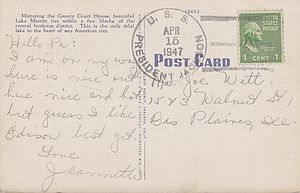 Mirroring the County Court House, beautiful
Lake Merritt lies within a few blocks of the
central business district. This is the only tidal
lake in the heart of any American city.
18852
U. S. S.
APR
15
1947
PRESIDENT
POST CARD
1 CENT 1
Hello Pa:
I am on my way
sure is nice out
here - nice and hot
but guess I like
Edison best yet.
Love
Jeannette
Mr. Joe Witt
1583 Walnut St,
Des Plaines, Ill.